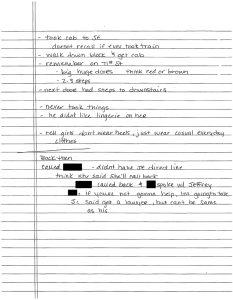 - took cab to JE
doesnt recall if ever took train
- walk down block & get cab
- remember on 71st St
- big huge doors think red or brown
- 2-3 steps
- next door had steps to downstairs
- never took things
- he didnt like lingerie on her
- tell girls dont wear heels, just wear casual everyday
clothes
Back then
called - didnt have JE direct line
think said she'll call back
called back & spoke w/ Jeffrey
: if youre not gonna help, Im going to talk
J: said get a lawyer, but cant be same
as his